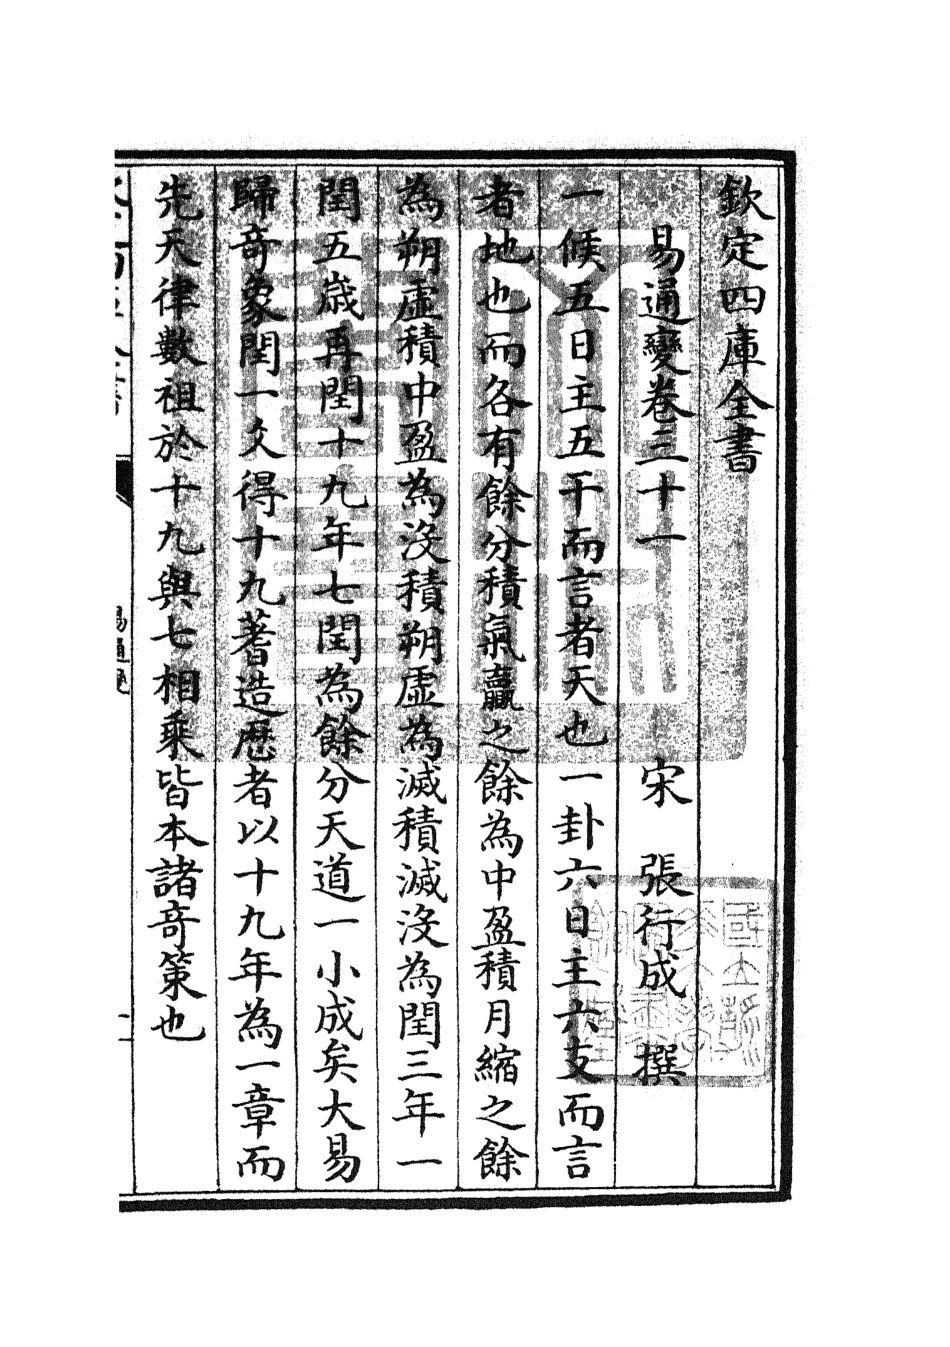 欽定四庫全書
易通變卷三十一　宋　張行成　撰
一候五日主五干而言者天也一卦六日主六支而言
者地也而各有餘分積氣贏之餘為中盈積月縮之餘
為朔虛積中盈為沒積朔虛為滅積滅沒為閏三年一
閏五歲再閏十九年七閏為餘分天道一小成矣大易
歸奇象閏一爻得十九蓍造歷者以十九年為一章而
先天律數祖於十九與七相乘皆本諸奇策也
易通變